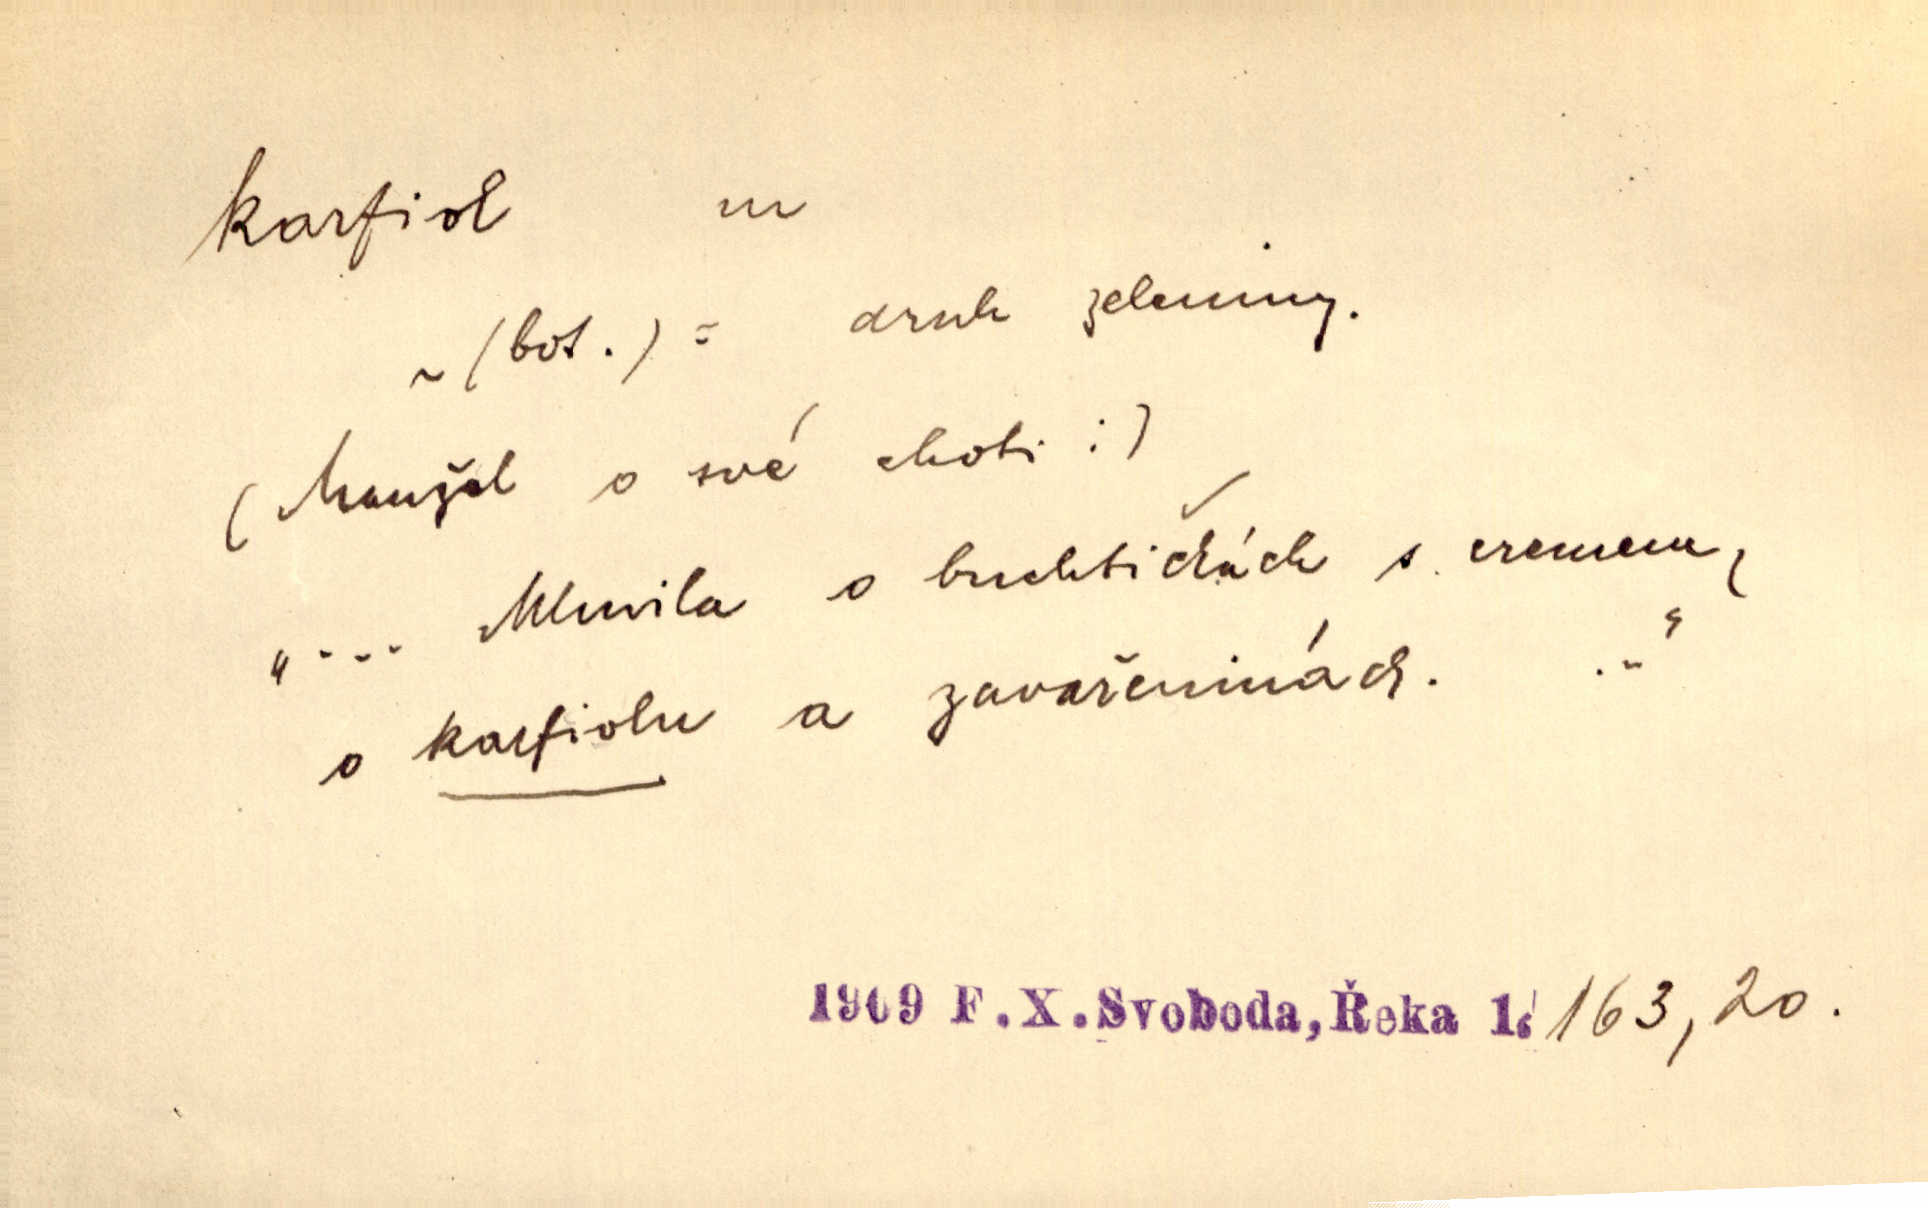 karfiol m
~ (bot.) = druh zeleniny.
(Manžel o své choti:)
„... Mluvila o buchtičkách s cremem,
o karfiolu a zavařeninách. ..."
1909 F.X.Svoboda, Řeka 1. 163, 20.